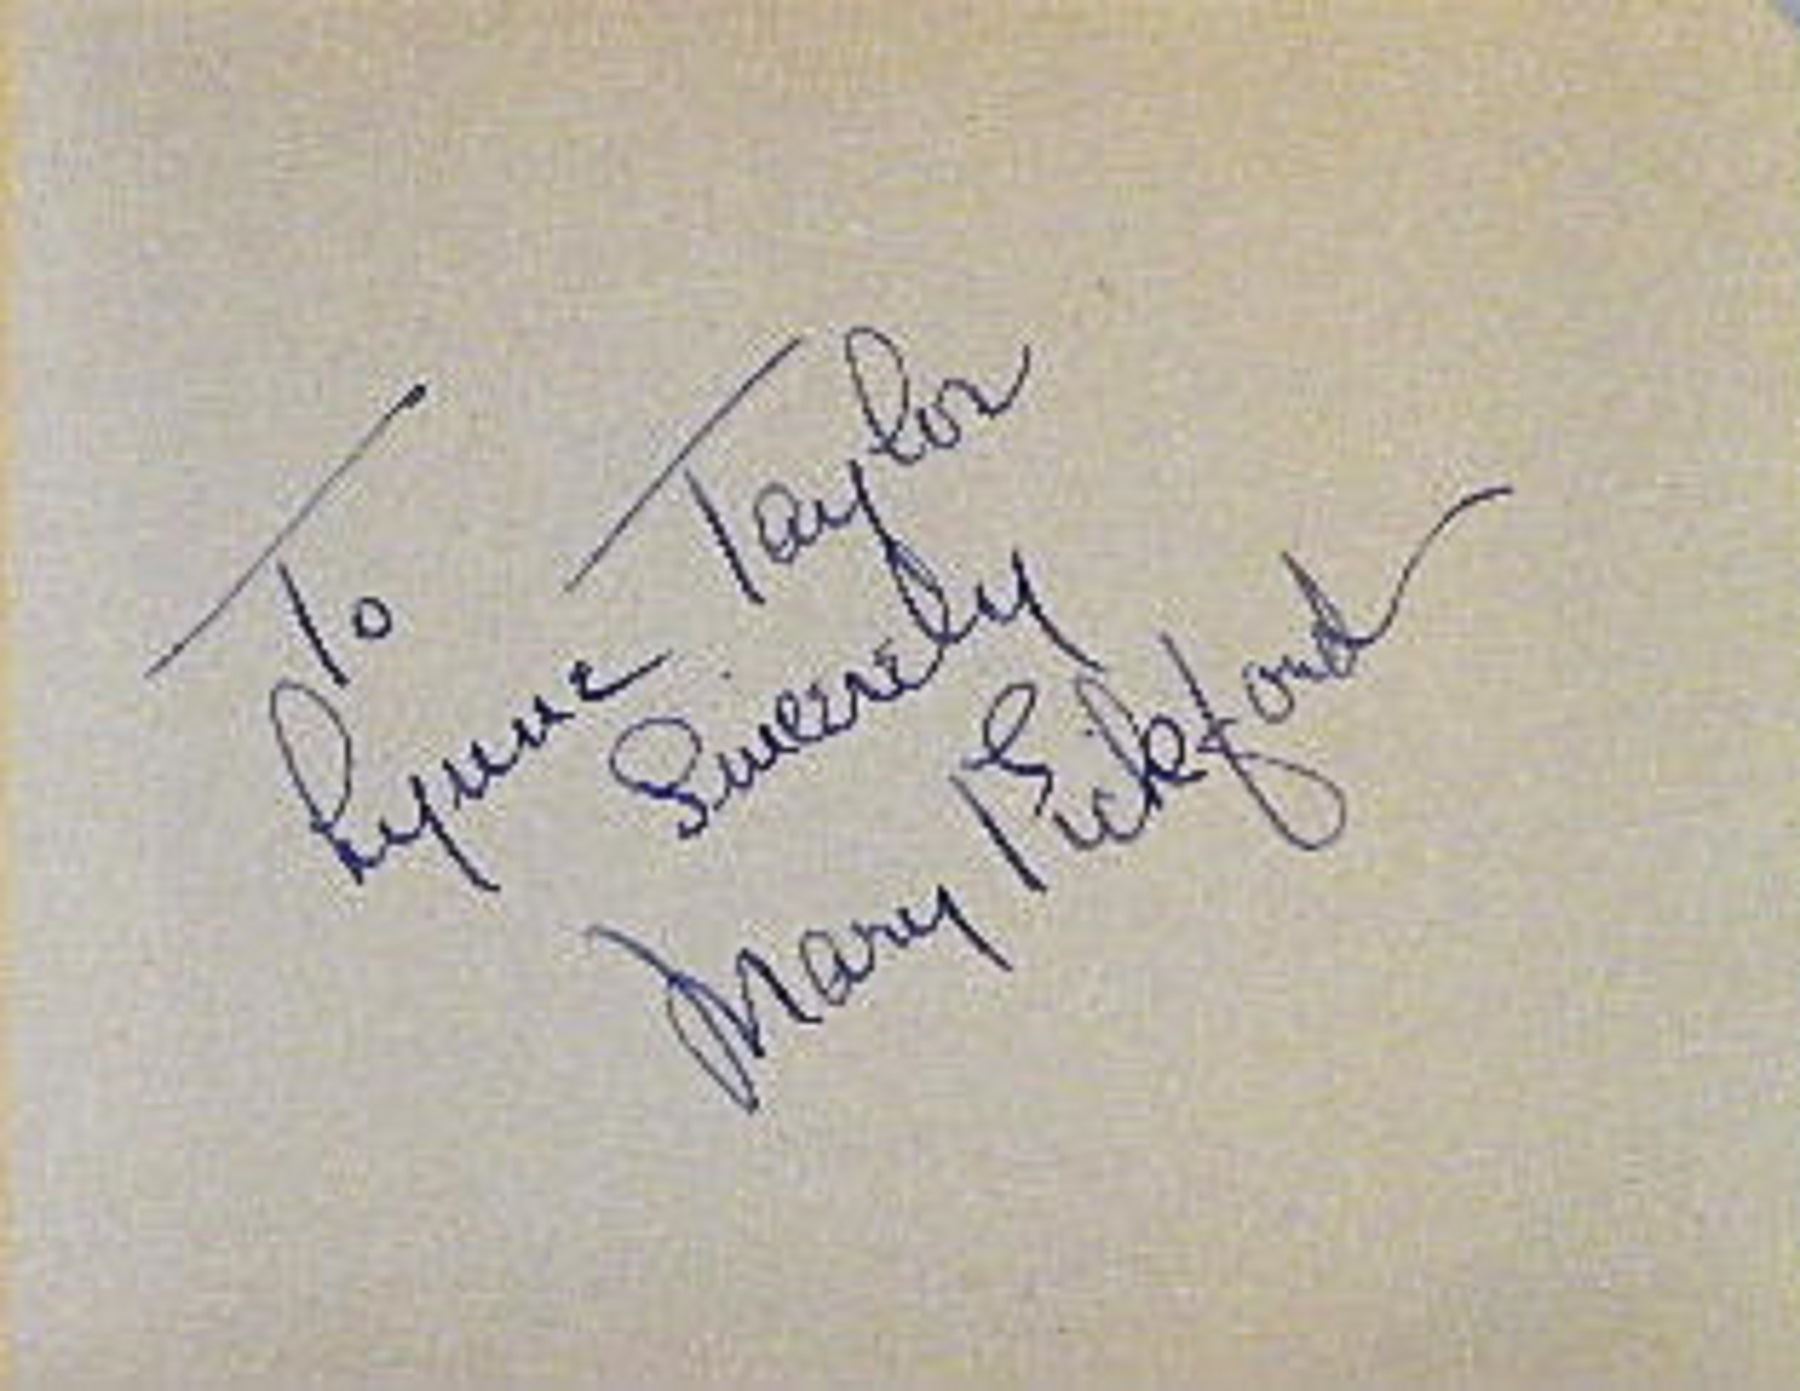 To
Lynne Taylor
Sincerely
Mary Pickford